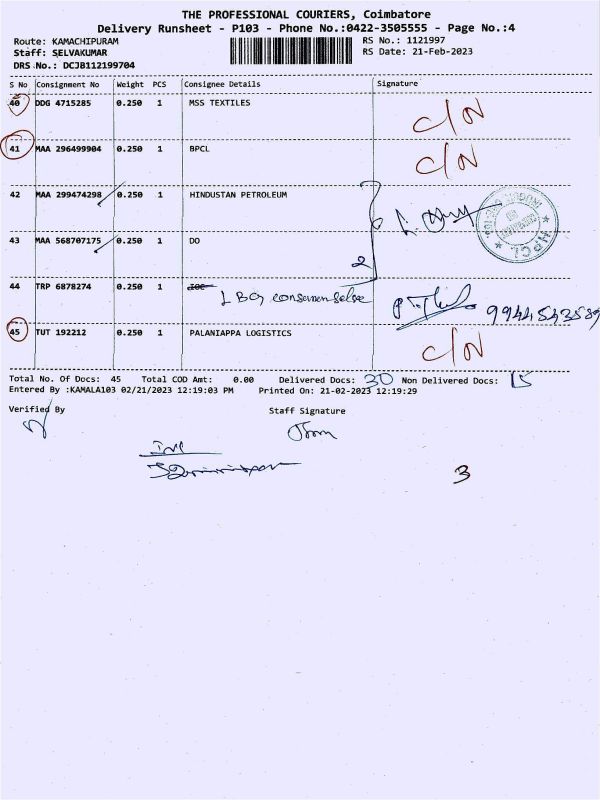 THE PROFESSIONAL COURIERS, Coimbatore
Delivery Runsheet - P103 - Phone No.:0422-3505555 - Page No.:4
Route: KAMACHIPURAM RS No.: 1121997
Staff: SELVAKUMAR RS Date: 21-Feb-2023
DRS No.: DCJB112199704
S No Consignment No Weight PCS Consignee Details Signature
40 DDG 4715285 0.250 1 MSS TEXTILES C/N
41 MAA 296499904 0.250 1 BPCL C/N
42 MAA 299474298 0.250 1 HINDUSTAN PETROLEUM
HPCL
43 MAA 568707175 0.250 1 DO
2
44 TRP 6878274 0.250 1 IOC
9944543589
45 TUT 192212 0.250 1 PALANIAPPA LOGISTICS C/N
Total No. Of Docs: 45 Total COD Amt: 0.00 Delivered Docs: 30 Non Delivered Docs: 15
Entered By :KAMALA103 02/21/2023 12:19:03 PM Printed On: 21-02-2023 12:19:29
Verified By Staff Signature
3